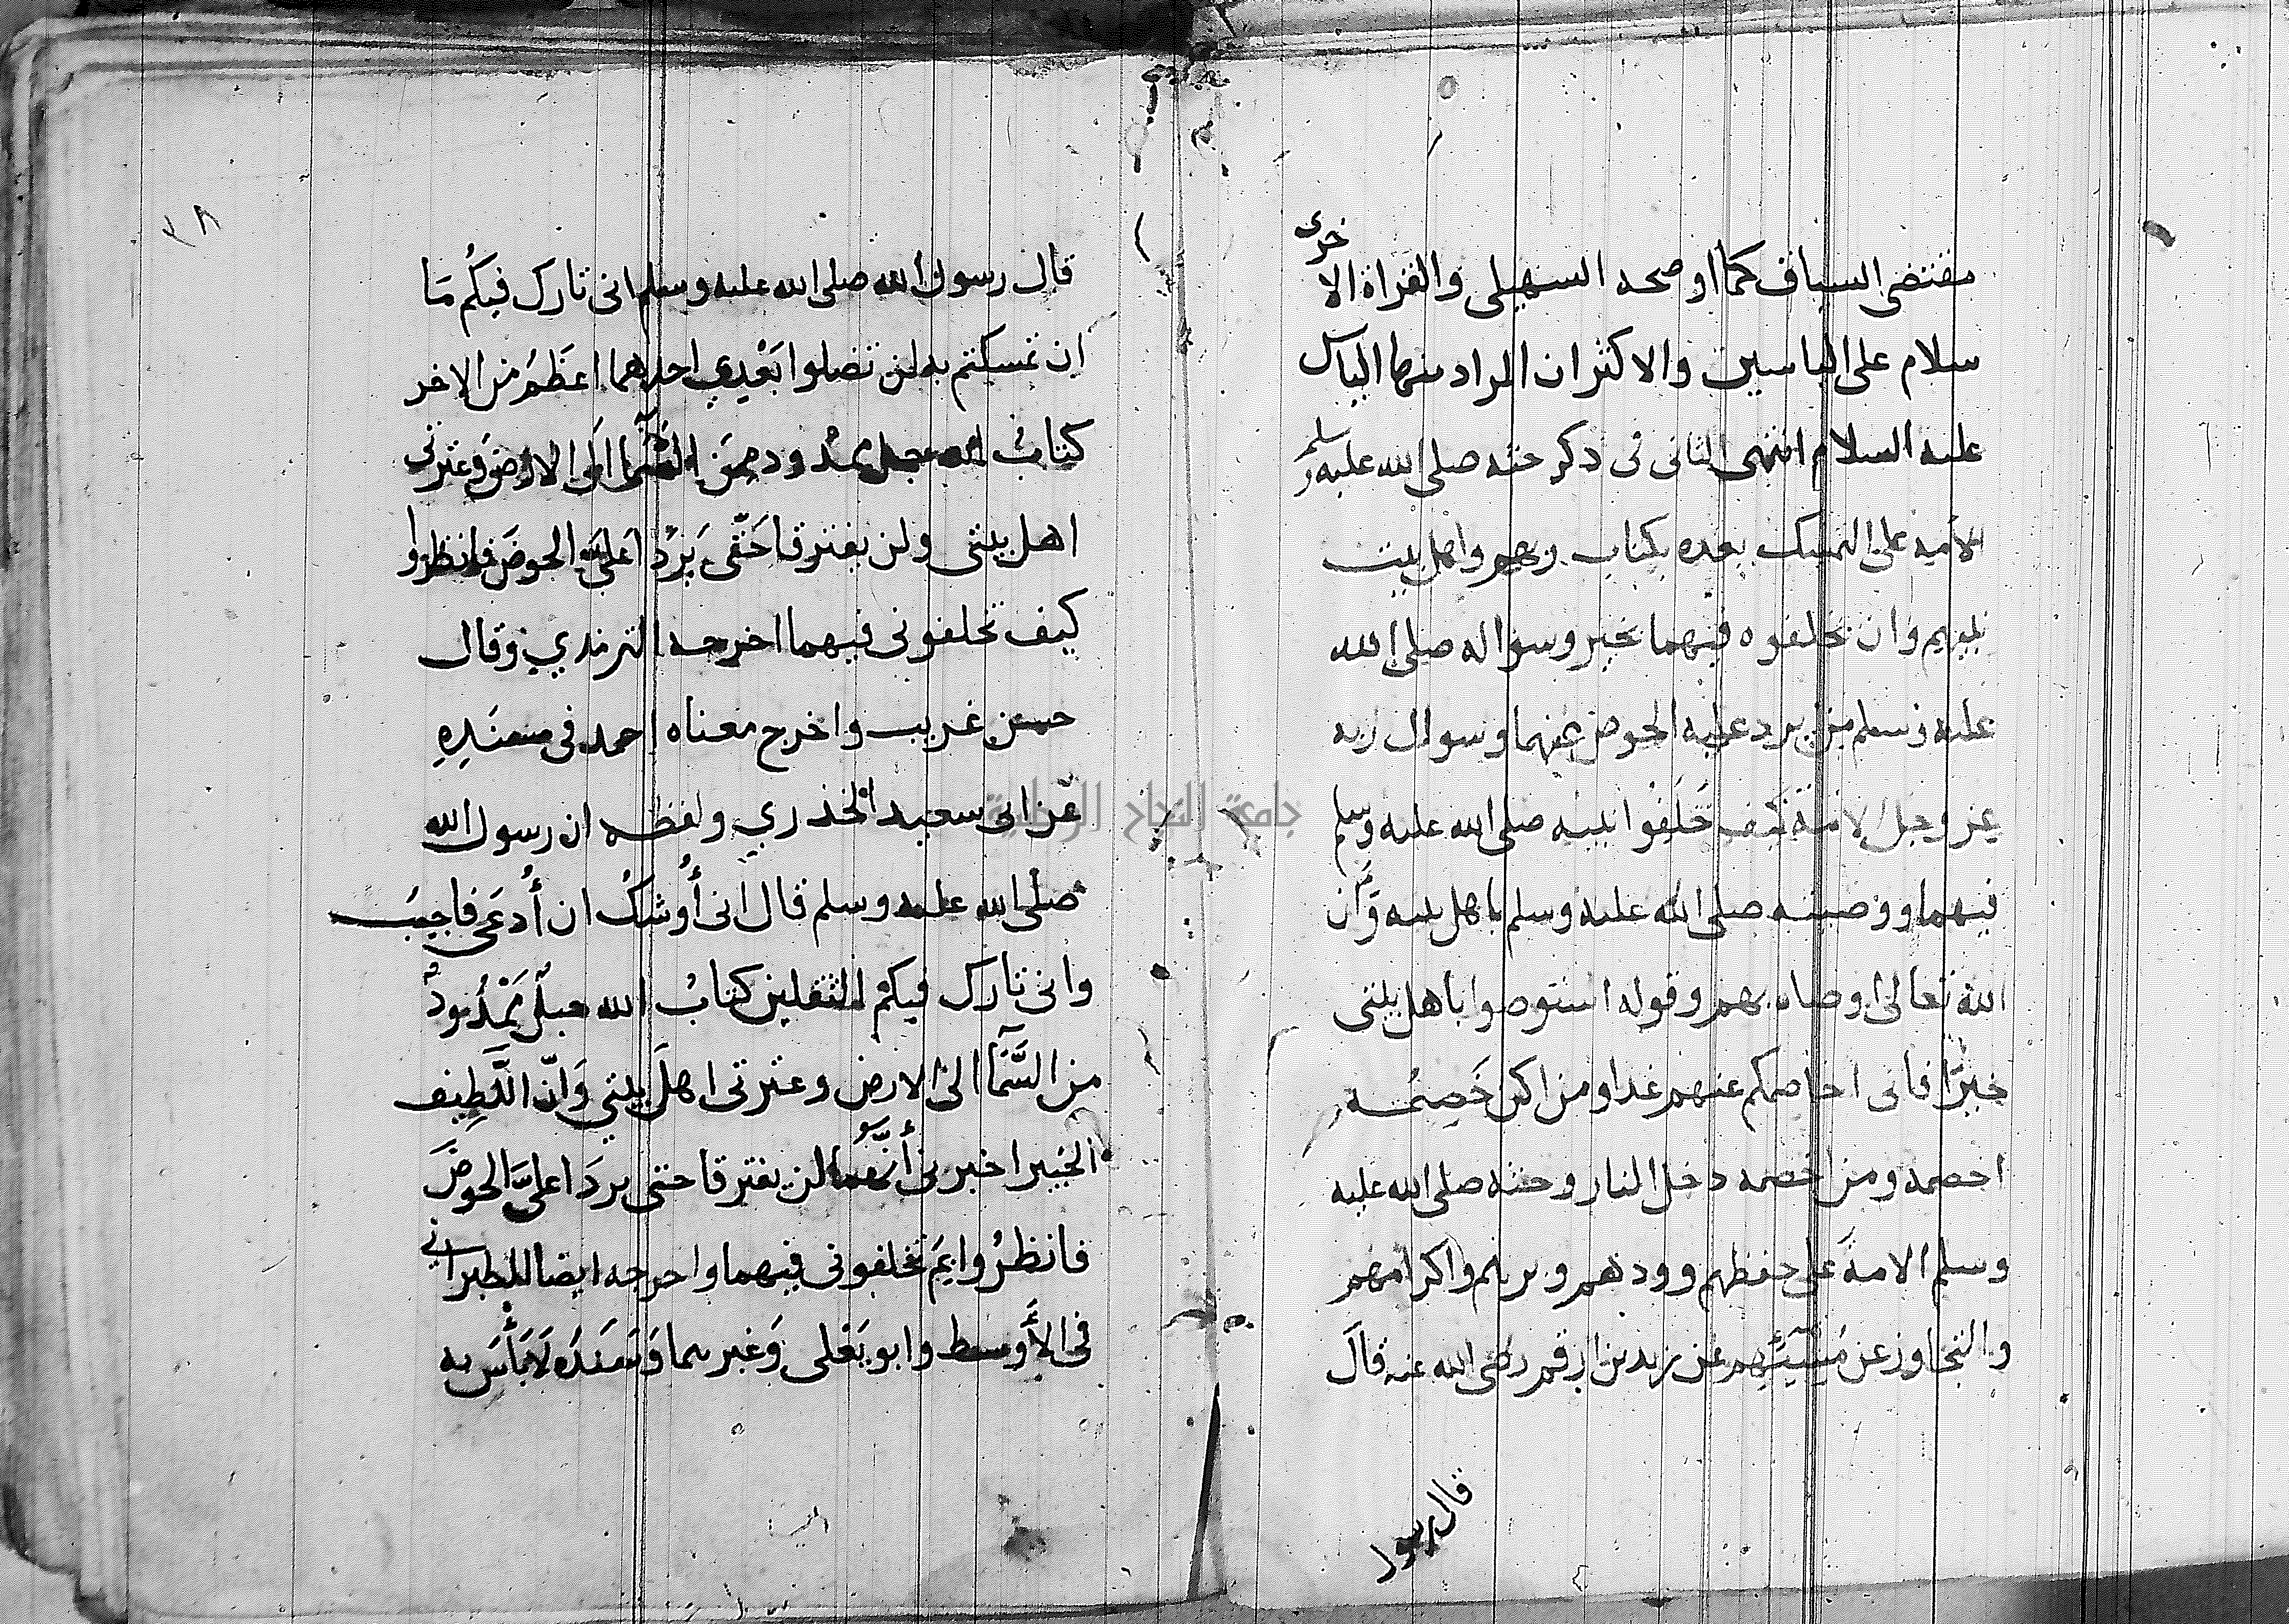 مقتضى السياق كما اوضحه السهيلى والقراة الاخرى
سلام على الياسين والاكثر ان المراد منهما الياس
عليه السلام انتهى الثانى فى ذكر حثه صلى الله عليه وسلم
الامة على التمسك بعده بكتاب ربهم واهل بيت
نبيهم وان يخلفوه فيهما بخير وسواله صلى الله
عليه وسلم من يرد عليه الحوض عنهما وسوال ربه
عز وجل الامة كيف خلفوا نبيه صلى الله عليه وسلم
فيهما ووصيته صلى الله عليه وسلم باهل بيته وَّان
الله تعالى اوصاه بهم وقوله استوصوا باهل بيتى
خيرًا فانى اخاصمكم عنهم غدا ومن اكن خَصِيمُه
اخصمه ومن اخصمه دخل النار وحثه صلى الله عليه
وسلم الامة على حفظهم وودهم وبرهم واكرامهم
والتجاوز عن مُسِيْئِهِم عن زيد بن ارقم رضى الله عنه قال
قال رسول
٢٨
قال رسول الله صلى الله عليه وسلم انى تارك فيكُم مَا
ان تمسكتم به لن تضلوا بَعْدِي احدهما اعَظَمُ من الاخر
كتابُ الله حبل ممدود مِنَ السَّمآ الَى الارضَ وعترتى
اهل بيتى ولن يفترقا حَتّى يَرِدُا عَلَىَّ الحوضَ فانظروا
كيف تخلفونى فيهما اخرجه الترمذي وقال
حسن غريب واخرج معناه احمد فى مسنَدِهِ
عن ابى سعيد الخدري ولفظه ان رسول الله
صلى الله عليه وسلم قال انى أُوشكُ ان أُدعَى فاجيبَ
وانى تارك فيكُم الثقلين كتابُ الله حبلٌ مَمْدُودٌ
من السَّمَآ الىَ الارض وعترتى اهلَ بيتي وَانّ اللَّطِيف
الخبير اخبرنى أنَّهُمَا لن يفترقا حتى يردَا علىَّ الحوضَ
فانظرُوا بِمَ تخلفونى فيهما واخرجه ايضا للطبرانى
فى الأَوسط وابو يَعْلى وَغيرهما وَسَنَدُه لَابَأْسَ به
جامعة النجاح الوطنية